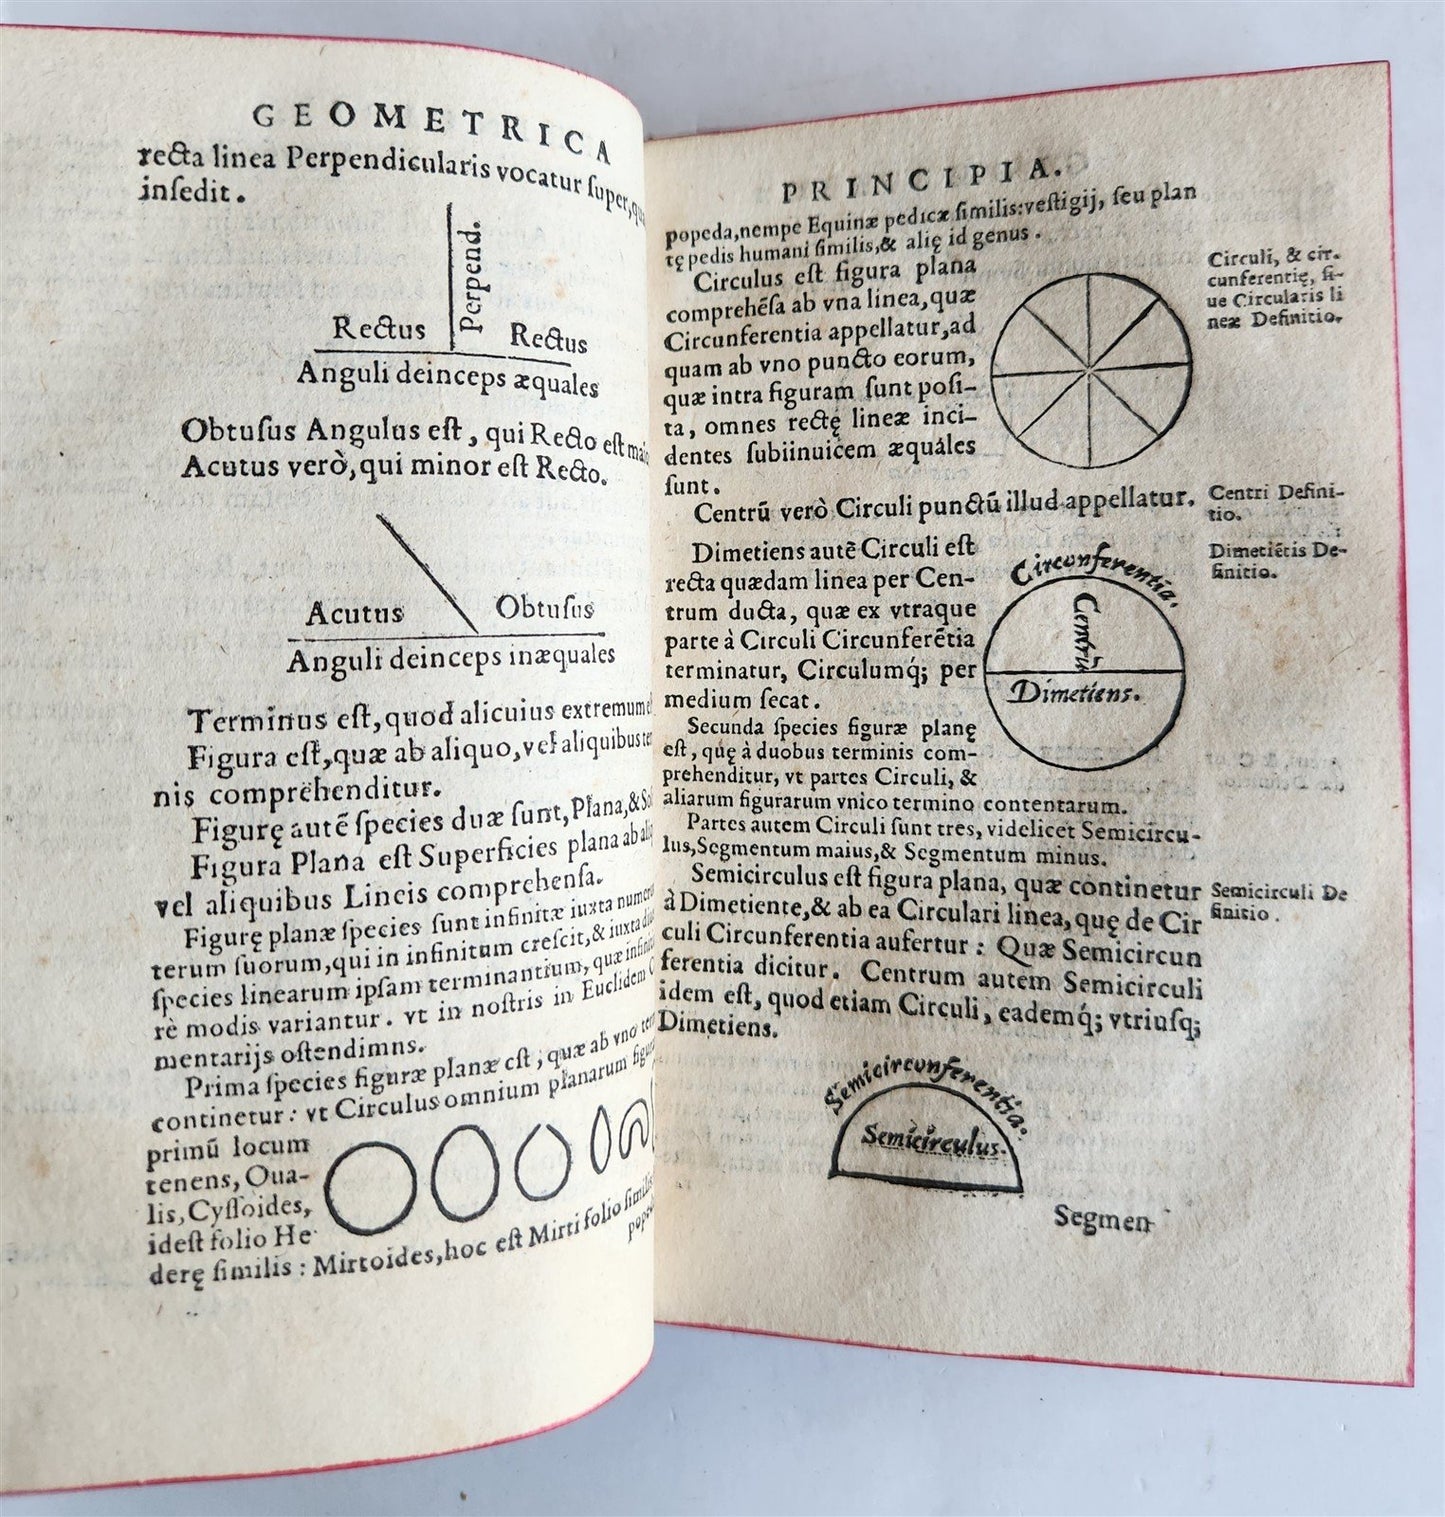 GEOMETRICA
recta linea Perpendicularis vocatur ſuper,
inſedit.
Perpend.
Rectus Rectus
Anguli deinceps æquales
Obtuſus Angulus eſt, qui Recto eſt
Acutus verò, qui minor eſt Recto.
Acutus Obtuſus
Anguli deinceps inæquales
Terminus eſt, quod alicuius extremum
Figura eſt, quæ ab aliquo, vel aliquibus
nis comprehenditur.
Figurę autē ſpecies duæ ſunt, Plana, &
Figura Plana eſt Superficies plana ab
vel aliquibus Lineis comprehenſa.
Figurę planæ ſpecies ſunt infinitæ iuxta
terum ſuorum, qui in infinitum creſcit, & iuxta
ſpecies linearum ipſam terminantium, quæ
rè modis variantur. vt in noſtris in Euclidem
mentarijs oſtendimns.
Prima ſpecies figuræ planæ eſt, quæ ab vno
continetur: vt Circulus omnium planarum
primū locum
tenens, Oua-
lis, Cyſſoides,
ideſt folio He
derę ſimilis: Mirtoides, hoc eſt Mirti folio
PRINCIPIA.
popeda, nempe Equinæ pedicæ ſimilis: veſtigij, ſeu plan
tę pedis humani ſimilis, & alię id genus.
Circulus eſt figura plana
comprehēſa ab vna linea, quæ
Circunferentia appellatur, ad
quam ab vno puncto eorum,
quæ intra figuram ſunt poſi-
ta, omnes rectę lineæ inci-
dentes ſubiinuicem æquales
ſunt.
Circuli, & cir-
cunferentię, ſi-
ue Circularis li
neæ Definitio.
Centrū verò Circuli punctū illud appellatur.
Centri Defini-
tio.
Dimetiens autē Circuli eſt
recta quædam linea per Cen-
trum ducta, quæ ex vtraque
parte à Circuli Circunferētia
terminatur, Circulumq́; per
medium ſecat.
Dimetiētis De-
finitio.
Circonferentia.
Centrū
Dimetiens.
Secunda ſpecies figuræ planę
eſt, quę à duobus terminis com-
prehenditur, vt partes Circuli, &
aliarum figurarum vnico termino contentarum.
Partes autem Circuli ſunt tres, videlicet Semicircu-
lus, Segmentum maius, & Segmentum minus.
Semicirculus eſt figura plana, quæ continetur
à Dimetiente, & ab ea Circulari linea, quę de Cir
culi Circunferentia aufertur: Quæ Semicircun
ferentia dicitur. Centrum autem Semicirculi
idem eſt, quod etiam Circuli, eademq́; vtriuſq;
Dimetiens.
Semicirculi De
finitio.
Semicircunferentia.
Semicirculus.
Segmen